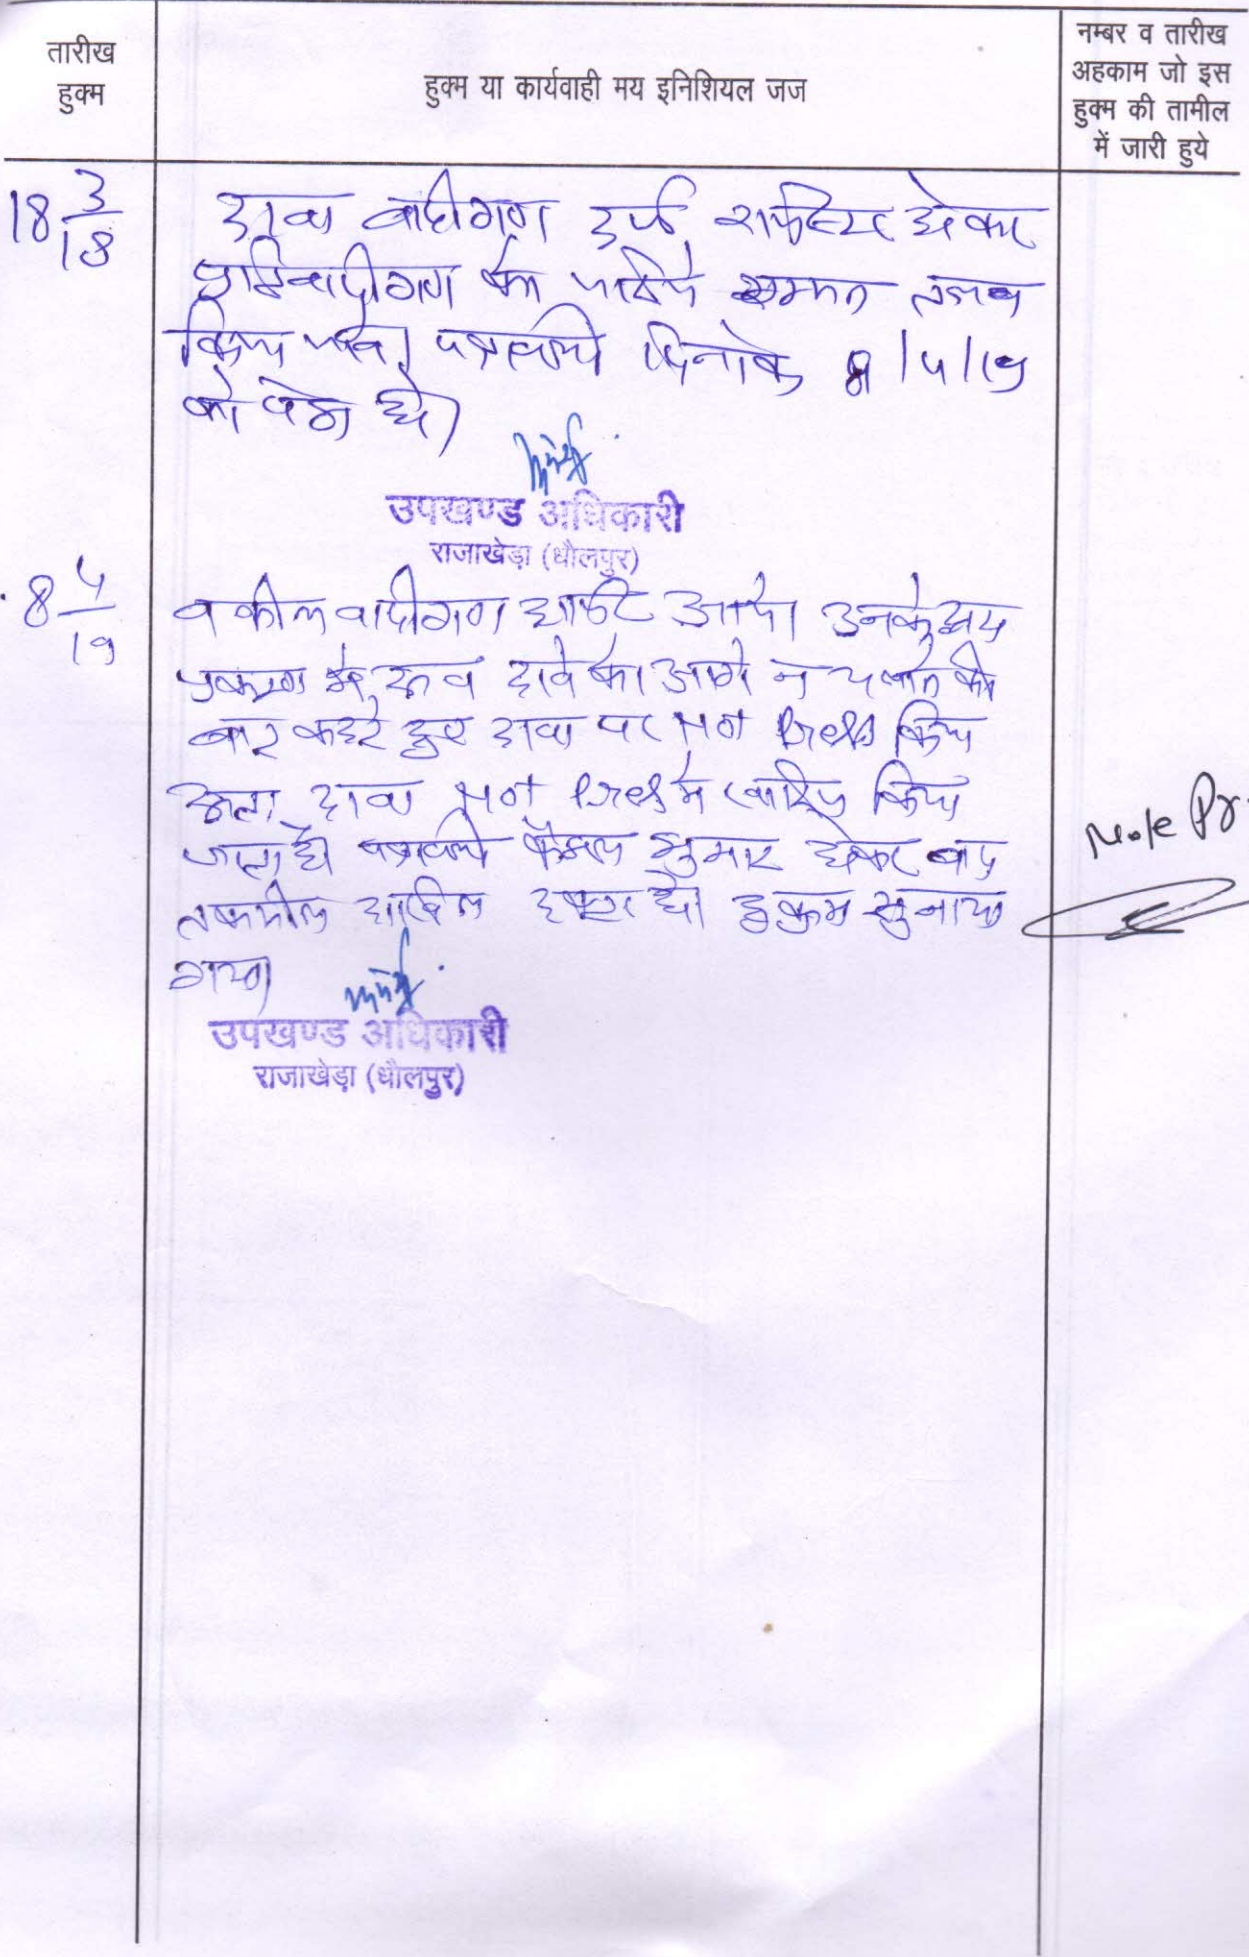 तारीख
हुक्म
हुक्म या कार्यवाही मय इनिशियल जज
नम्बर व तारीख
अहकाम जो इस
हुक्म की तामील
में जारी हुये
18 3/18
दावा वादीगण दर्ज रजिस्टर होकर
प्रतिवादीगण को जरिये सम्मन तलब
किया जावे। पत्रावली दिनांक 8/4/19
को पेश हो।
उपखण्ड अधिकारी
राजाखेड़ा (धौलपुर)
8 4/19
वकील वादीगण हाजिर आये। उनके द्वारा
प्रकरण में दावे को आगे न चलाने की
बात कहते हुए दावा पर Not Press किया
अतः दावा Not Press में खारिज किया
जाता है पत्रावली फैसल शुमार होकर बाद
तकमील दाखिल दफ्तर हो। हुकम सुनाया
गया।
उपखण्ड अधिकारी
राजाखेड़ा (धौलपुर)